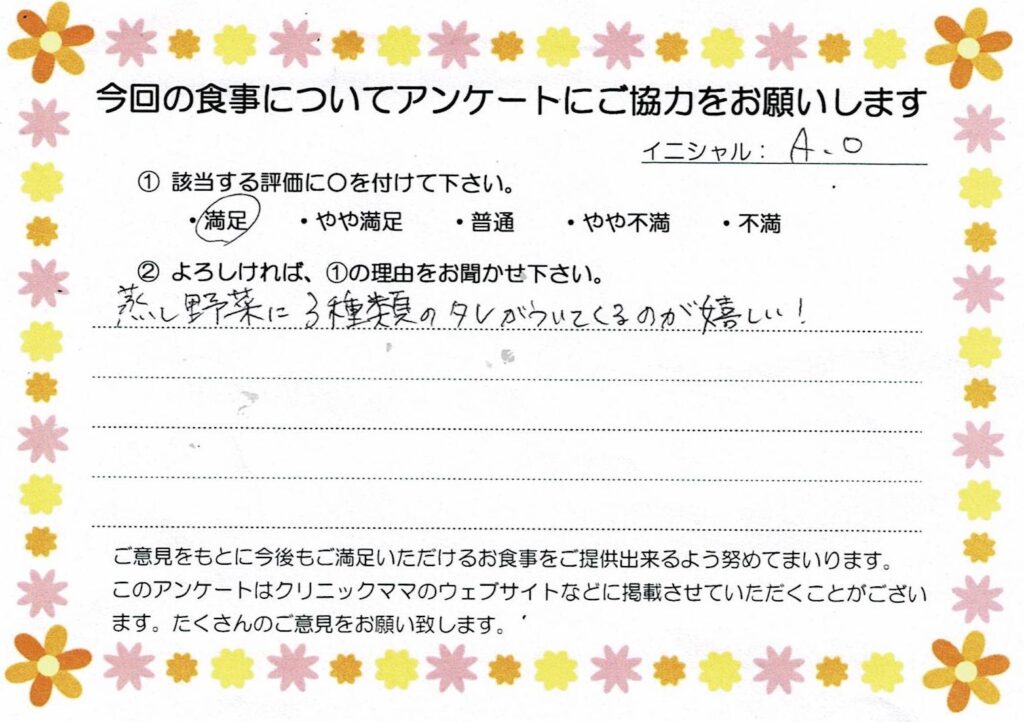 今回の食事についてアンケートにご協力をお願いします
イニシャル： A.O
① 該当する評価に〇を付けて下さい。
・満足 ・やや満足 ・普通 ・やや不満 ・不満
② よろしければ、①の理由をお聞かせ下さい。
蒸し野菜に3種類のタレがついてくるのが嬉しい！
ご意見をもとに今後もご満足いただけるお食事をご提供出来るよう努めてまいります。
このアンケートはクリニックママのウェブサイトなどに掲載させていただくことがござい
ます。たくさんのご意見をお願い致します。